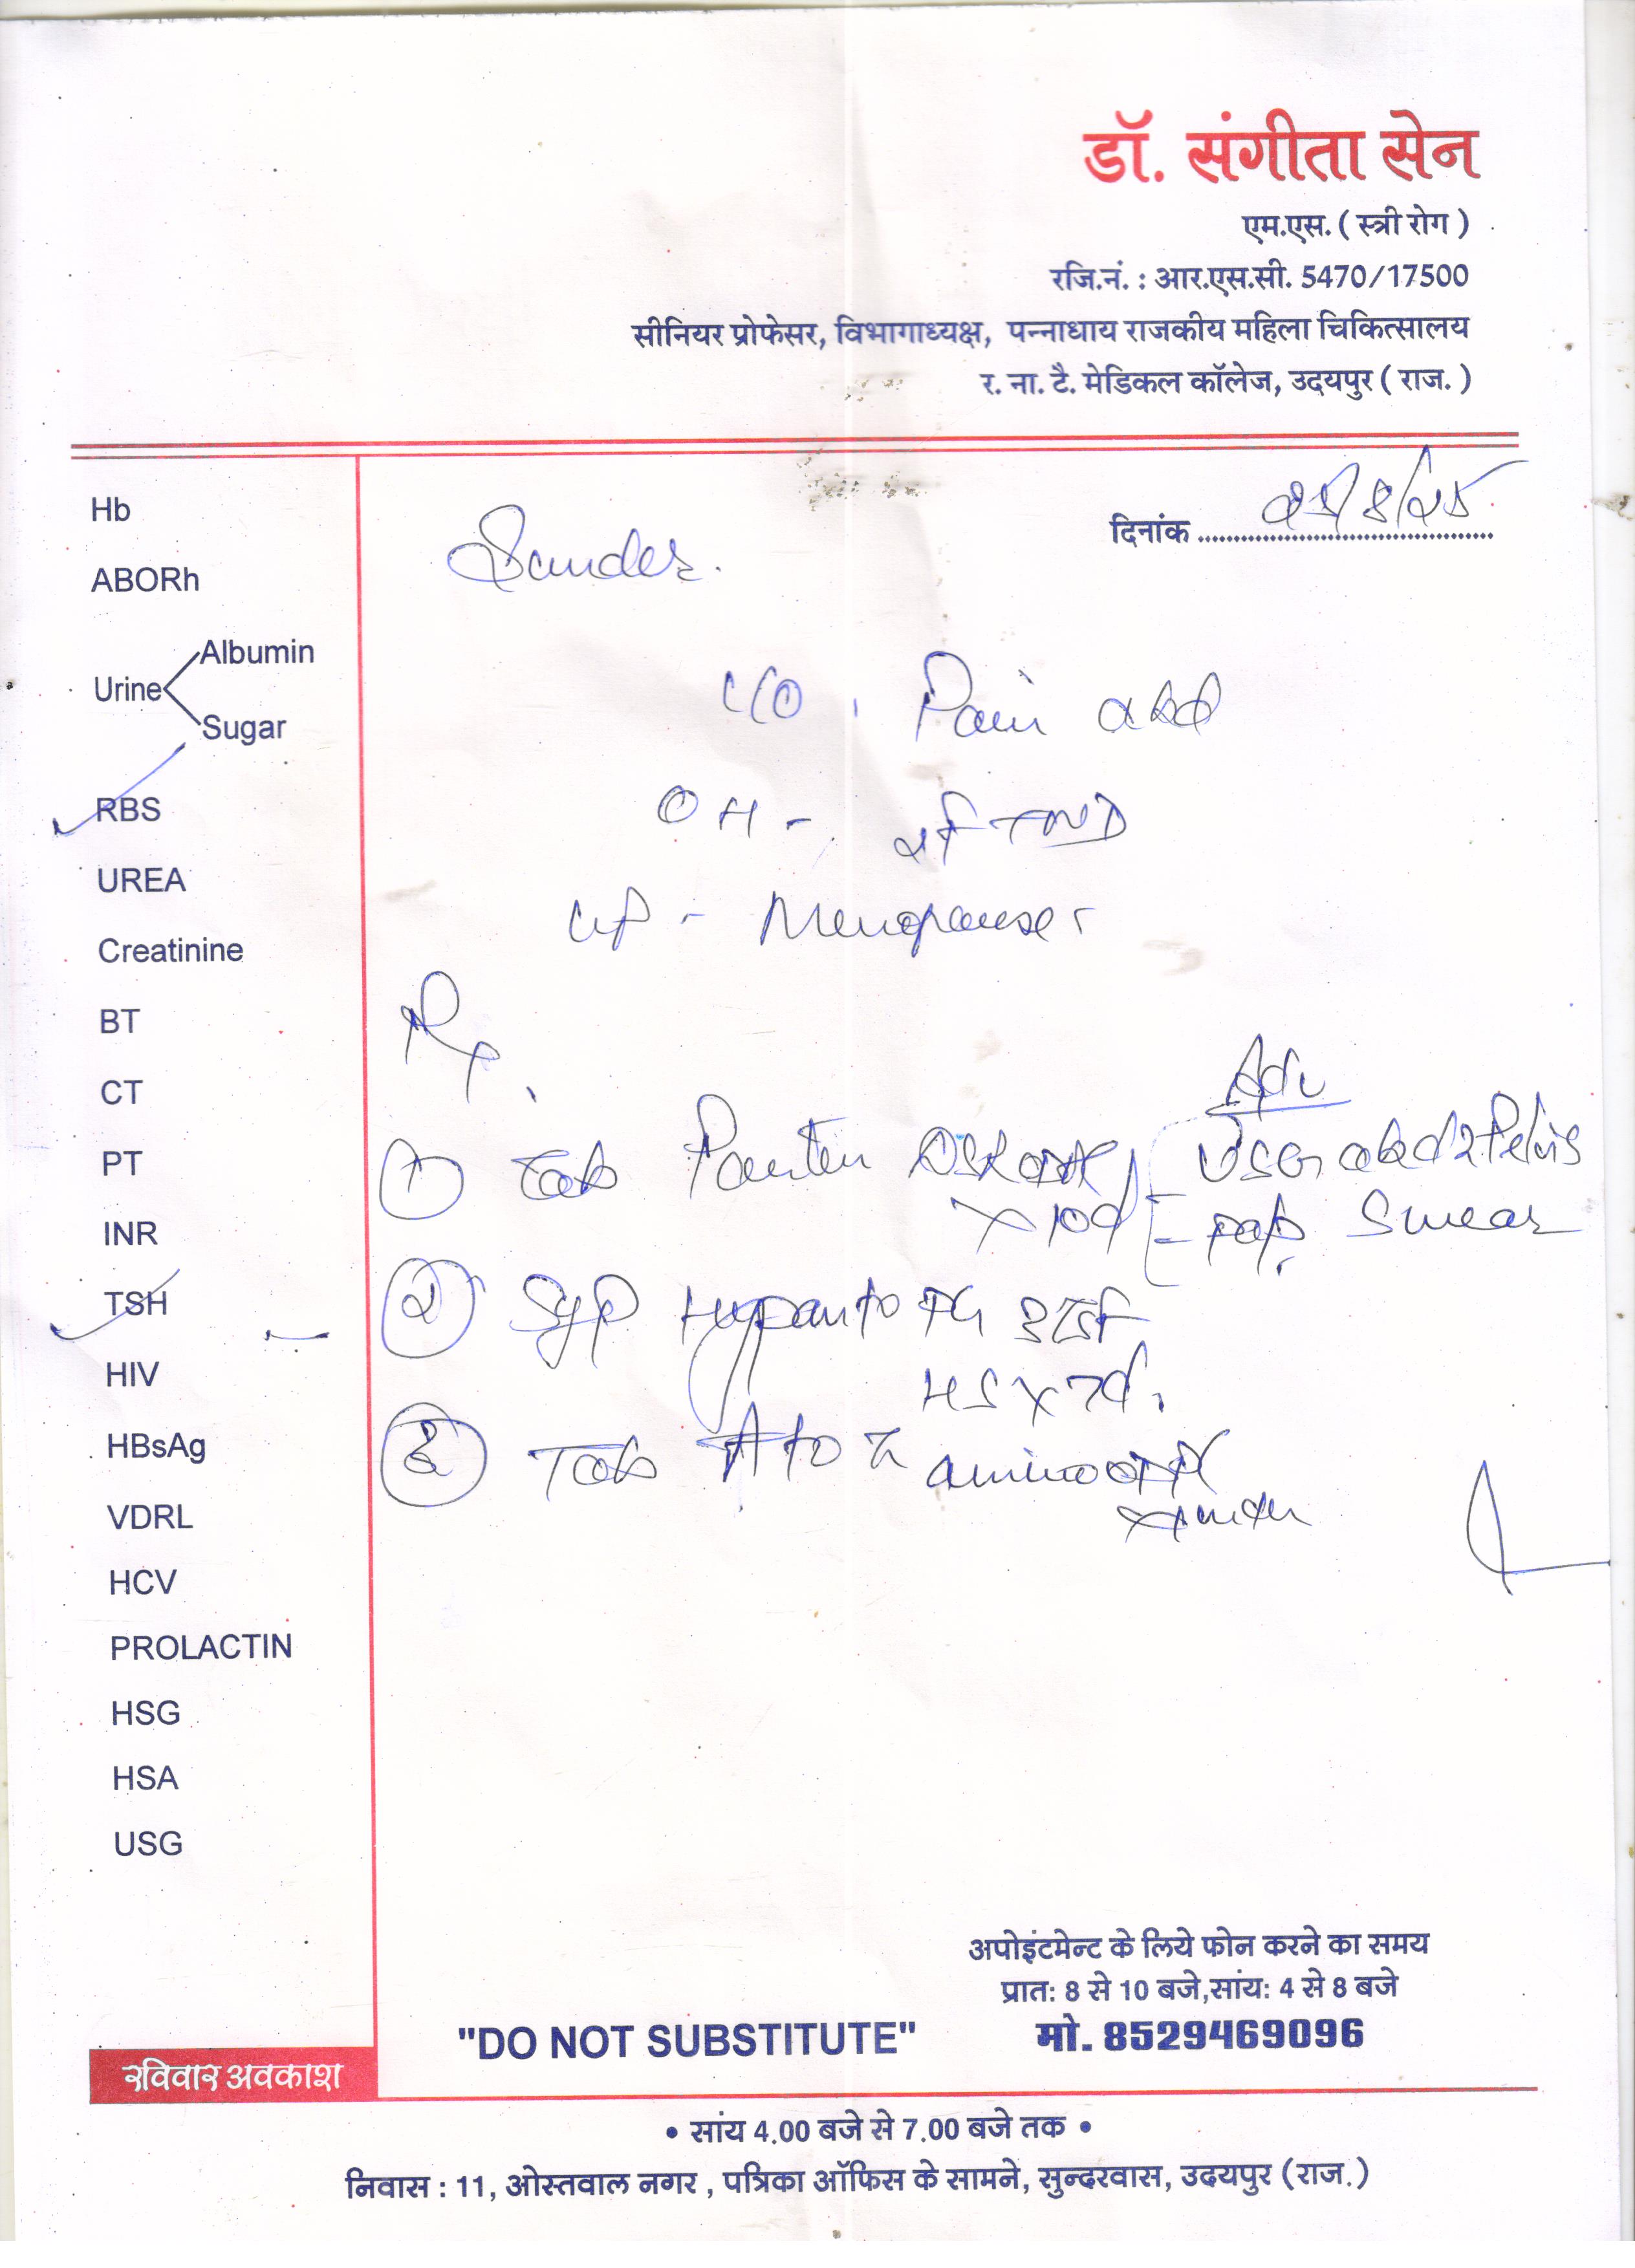 डॉ. संगीता सेन
एम.एस. ( स्त्री रोग )
रजि.नं. : आर.एस.सी. 5470/17500
सीनियर प्रोफेसर, विभागाध्यक्ष, पन्नाधाय राजकीय महिला चिकित्सालय
र. ना. टै. मेडिकल कॉलेज, उदयपुर ( राज. )
दिनांक
Hb
ABORh
Urine
Albumin
Sugar
RBS
UREA
Creatinine
BT
CT
PT
INR
TSH
HIV
HBsAg
VDRL
HCV
PROLACTIN
HSG
HSA
USG
C/O Pain abd
OH - FTND
LMP - Menopause
Rx
Adv
USG abd & Pelvis
- Pap Smear
① Tab DSR
x 10d
② Syp
HS x 7d
③ Tab A to Z amino
"DO NOT SUBSTITUTE"
अपोइंटमेन्ट के लिये फोन करने का समय
प्रातः 8 से 10 बजे,सांयः 4 से 8 बजे
मो. 8529469096
रविवार अवकाश
• सांय 4.00 बजे से 7.00 बजे तक •
निवास : 11, ओस्तवाल नगर , पत्रिका ऑफिस के सामने, सुन्दरवास, उदयपुर (राज.)